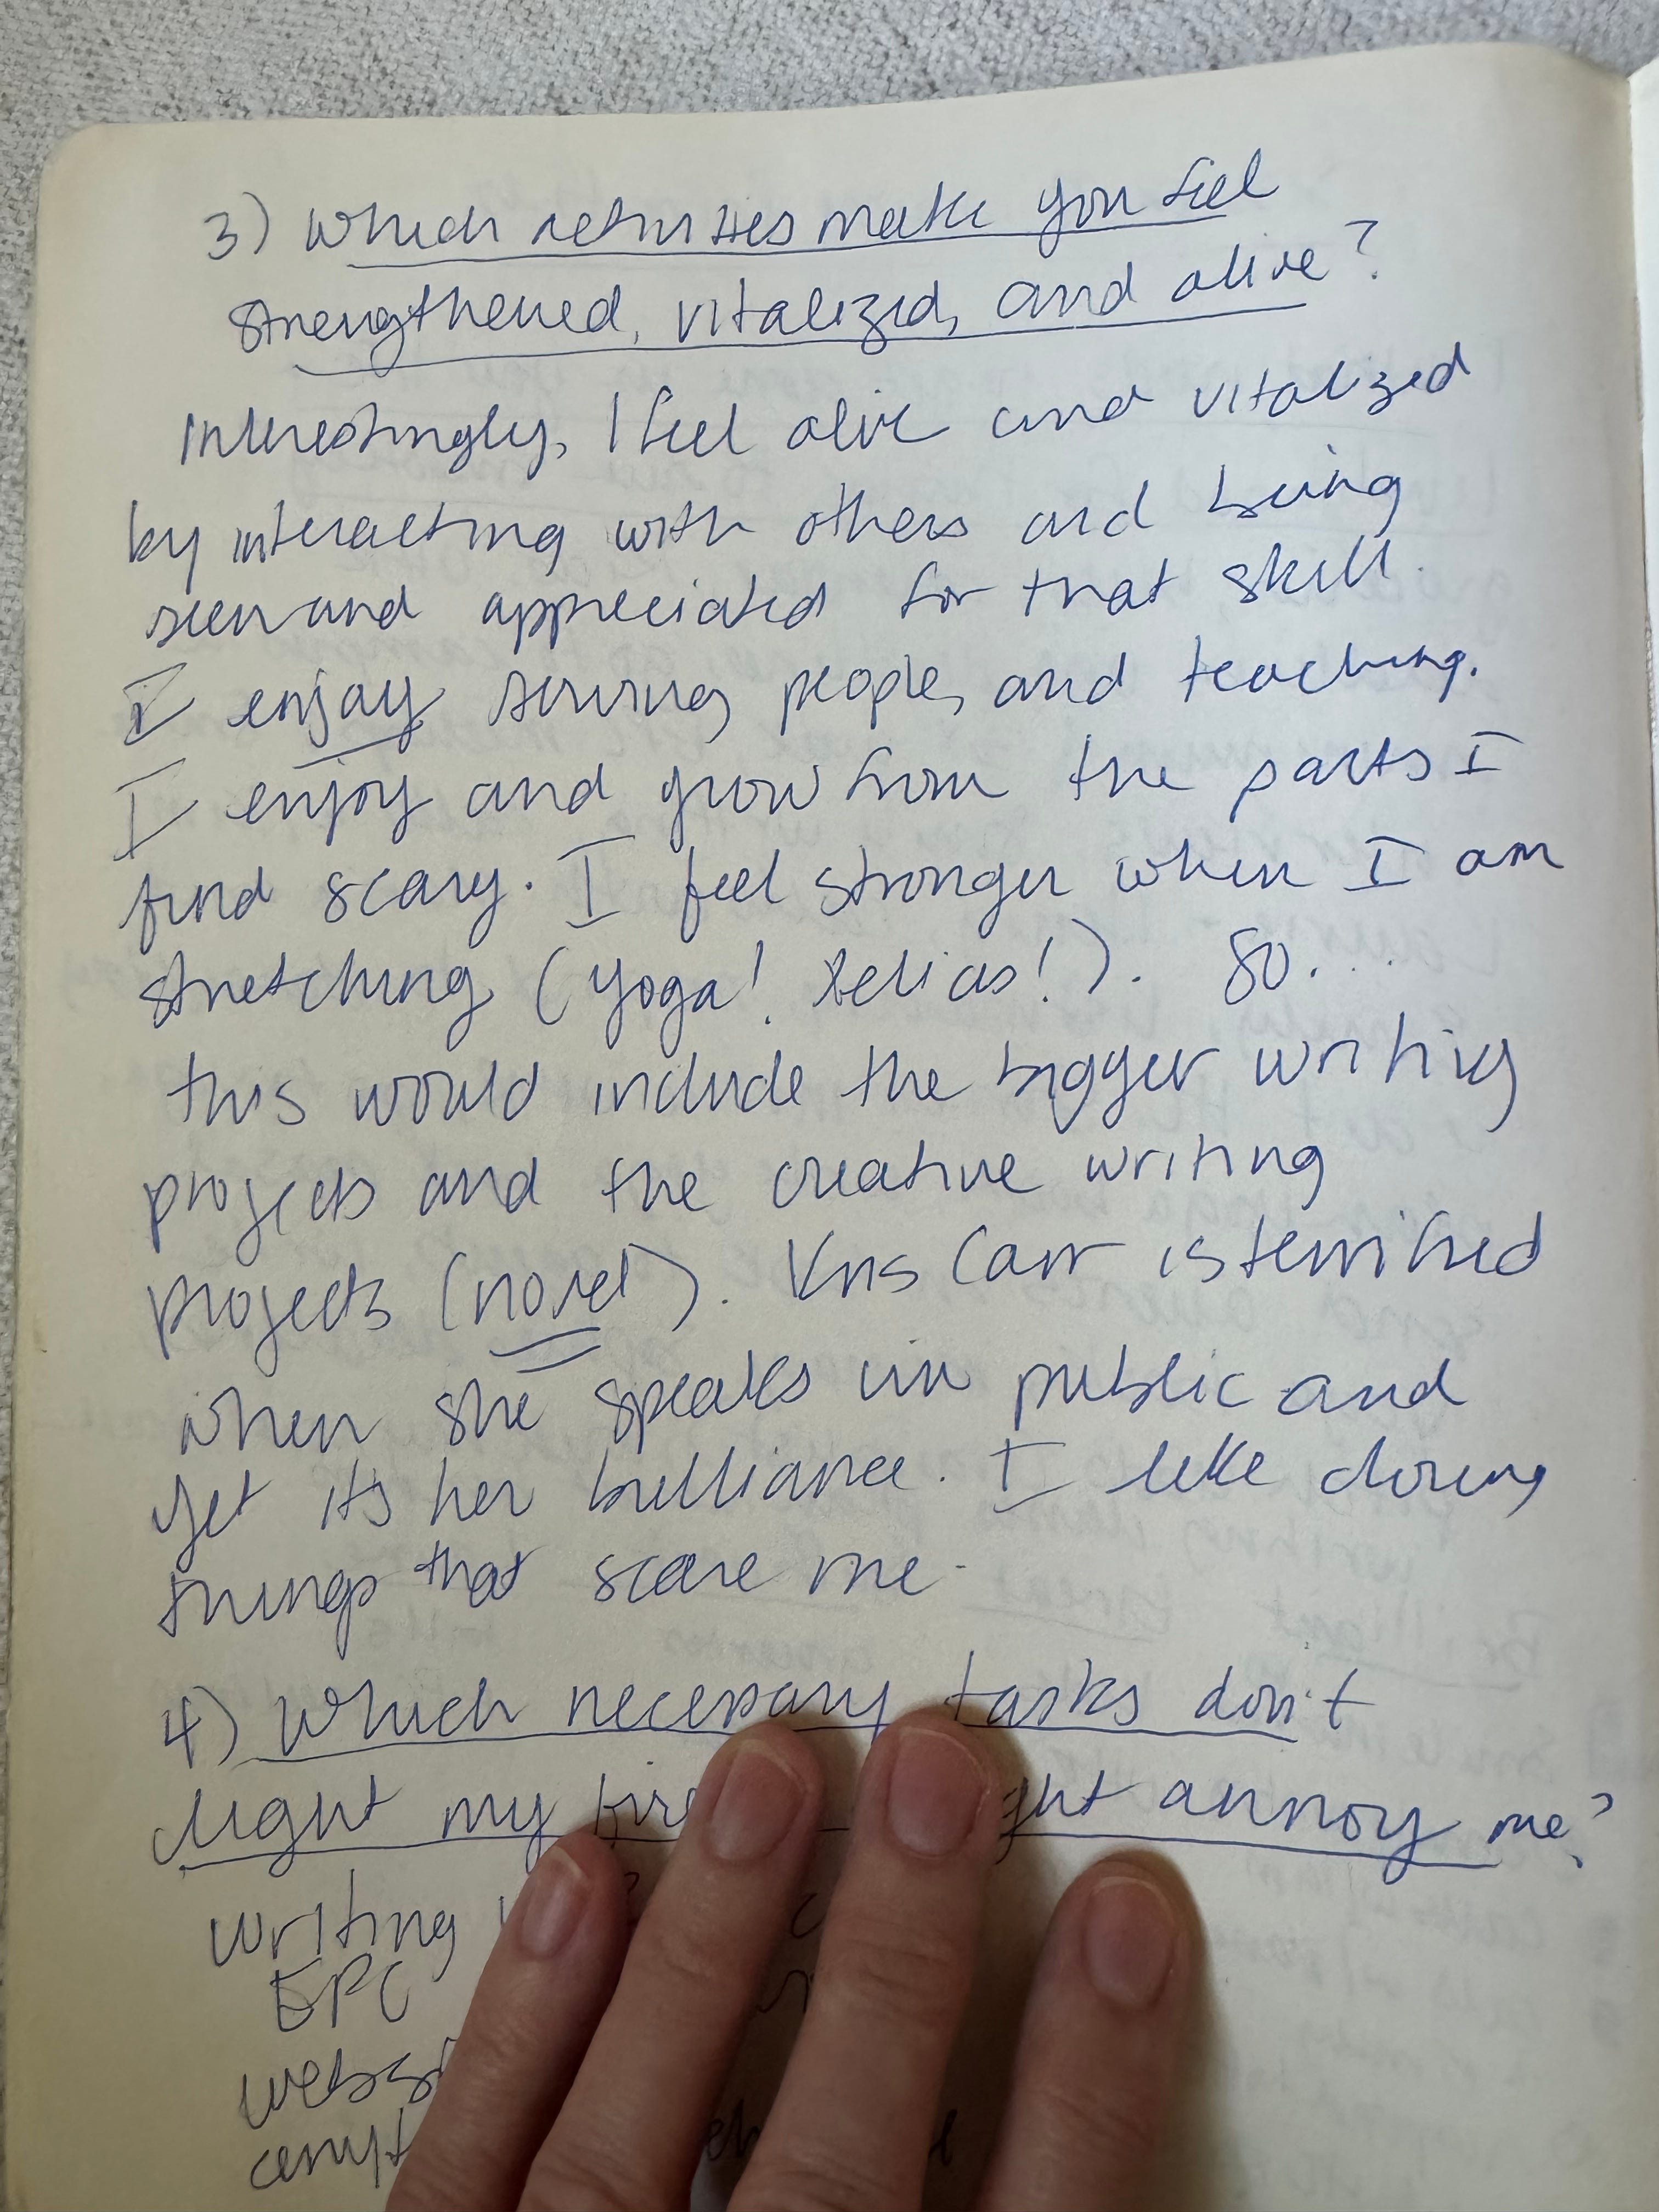 3) Which activities make you feel
strengthened, vitalized, and alive?
Interestingly, I feel alive and vitalized
by interacting with others and being
seen and appreciated for that skill.
I enjoy serving people, and teaching.
I enjoy and grow from the parts I
find scary. I feel stronger when I am
stretching (yoga! !). So...
this would include the bigger writing
projects and the creative writing
projects (novel). Kris Carr is terrified
when she speaks in public and
yet it's her brilliance. I like doing
things that scare me.
4) Which necessary tasks don't
light my annoy me?
writing
EPC